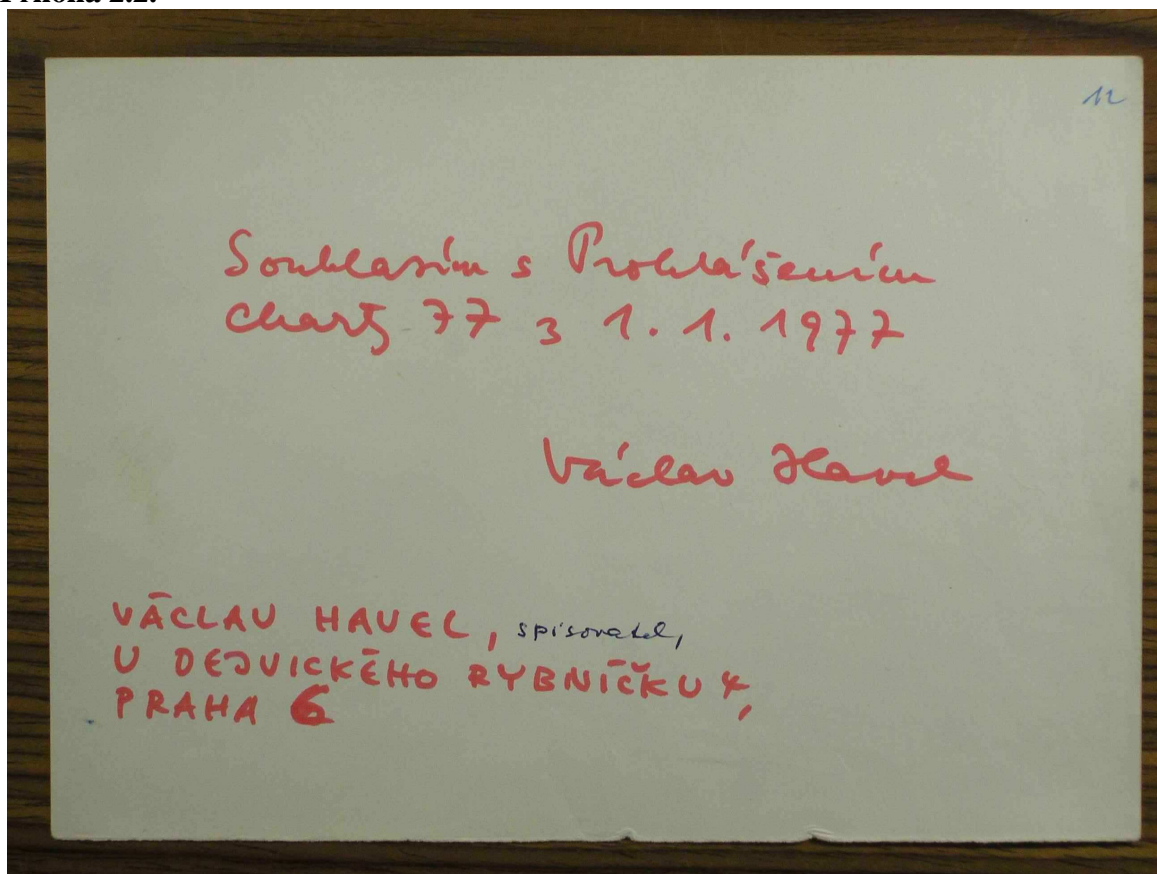 Příloha 2.2.
12
Souhlasím s Prohlášením
Charty 77 z 1. 1. 1977
Václav Havel
VÁCLAV HAVEL, spisovatel,
U DEJVICKÉHO RYBNÍČKU 4,
PRAHA 6